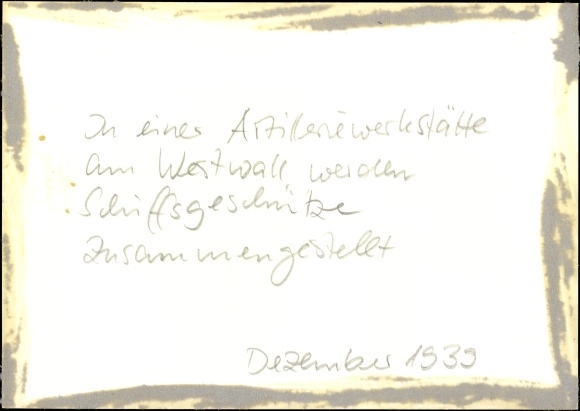 In einer Artilleriewerkstätte
am Westwall werden
Schiffsgeschütze
zusammengestellt
Dezember 1939